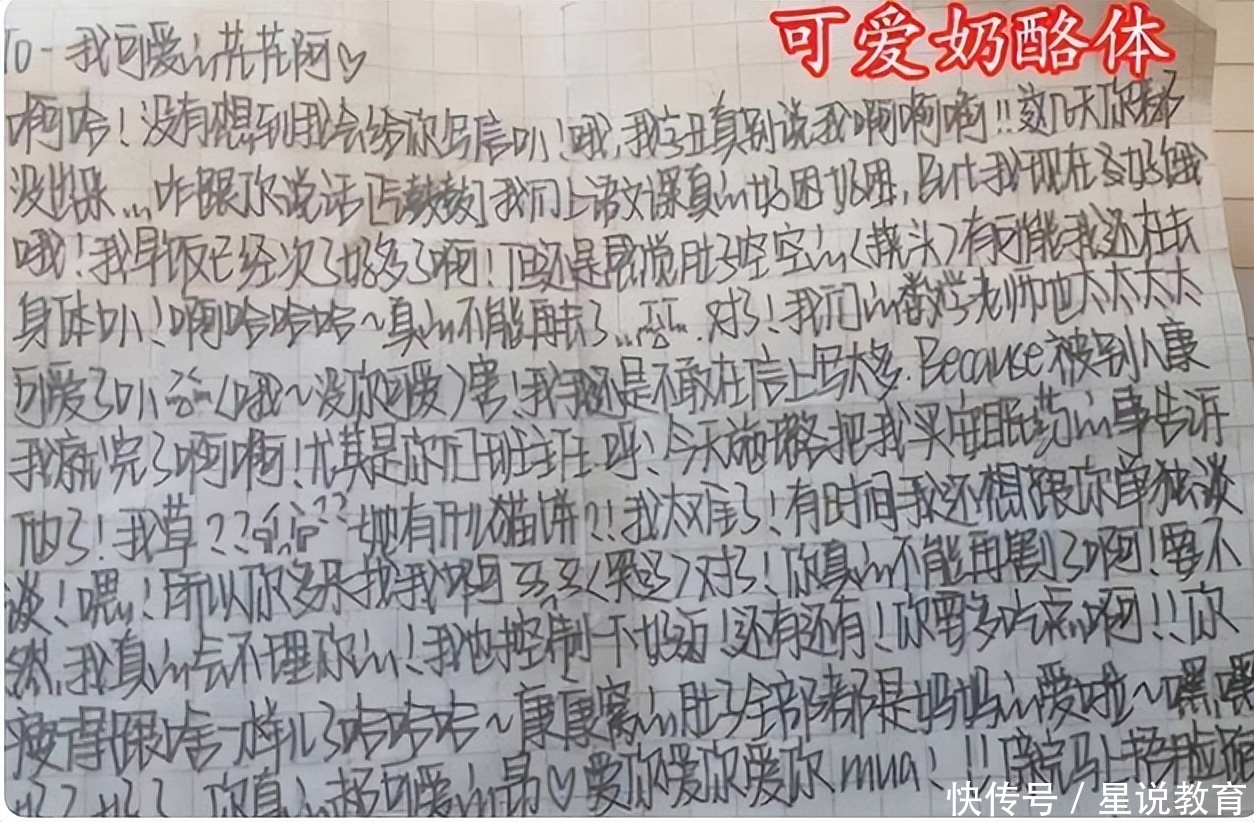 可爱奶酪体
TO-我可爱in花花阿♡
啊哈！没有想到我会给你写信叭！哦，我字丑真别说我啊啊啊!!这几天你都
没出来...咋跟你说话[气鼓鼓]我们上语文课真in好困好困，且我现在好饿
哦！我早饭已经次了好多了啊！但还是感觉肚子空空in(挠头)有可能我还在长
身体叭！啊哈哈哈~真in不能再长了...对了！我们in数学老师也太太太太
可爱了叭(哦~没你可爱)害！我还是不敢在信上写太多.Because被别人康
我就完了啊啊！尤其是你们班主任呼！今天把我买安眠药in事告诉
他了！我草??她有什么猫饼?!我太难了！有时间我还想跟你单独谈
谈！嘿！所以你多来找我啊(哭泣)对了！你真in不能再割了啊！要不
然，我真in会不理你in！我也控制一下还有还有！你要多吃点啊!!你
瘦得跟啥一样儿了哈哈哈~康康窝in肚子全部都是妈妈in爱啦~嘿嘿
好了好了你真in超可爱in♡爱你爱你爱你mua！!!
快传号/星说教育